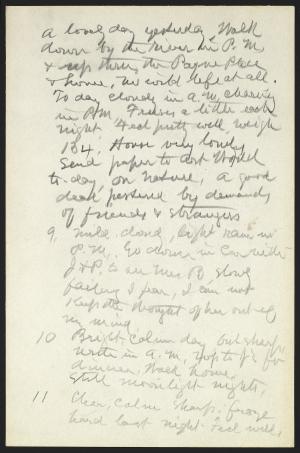 A lovely day yesterday. Walk
down by the river in P.M.
& up thru the Payne Place
& home, no cold left at all.
To day cloudy in a.m, clearing
in P.M. Freezes a little each
night. Feel pretty well, weigh
134. House very lonely
Send paper to Art World
to-day, on nature; a good
deal pestered by demands
of friends & strangers
9, mild, cloudy, light rain in
P.M. Go down in Car with
J & P. to see Mrs B slowly
failing I fear, I can not
keep the thought of her out of
my mind.
10 Bright calm day but sharp
write in a.m, up to J's for
dinner, Walk home,
Still moonlight nights,
11 Clear, calm sharp; froze
hard last night. Feel well,